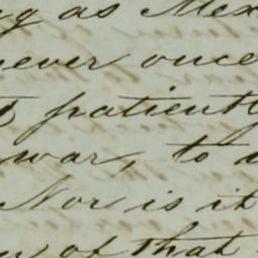 as Mex
never once
patiently
war, to
Nor is it
of that